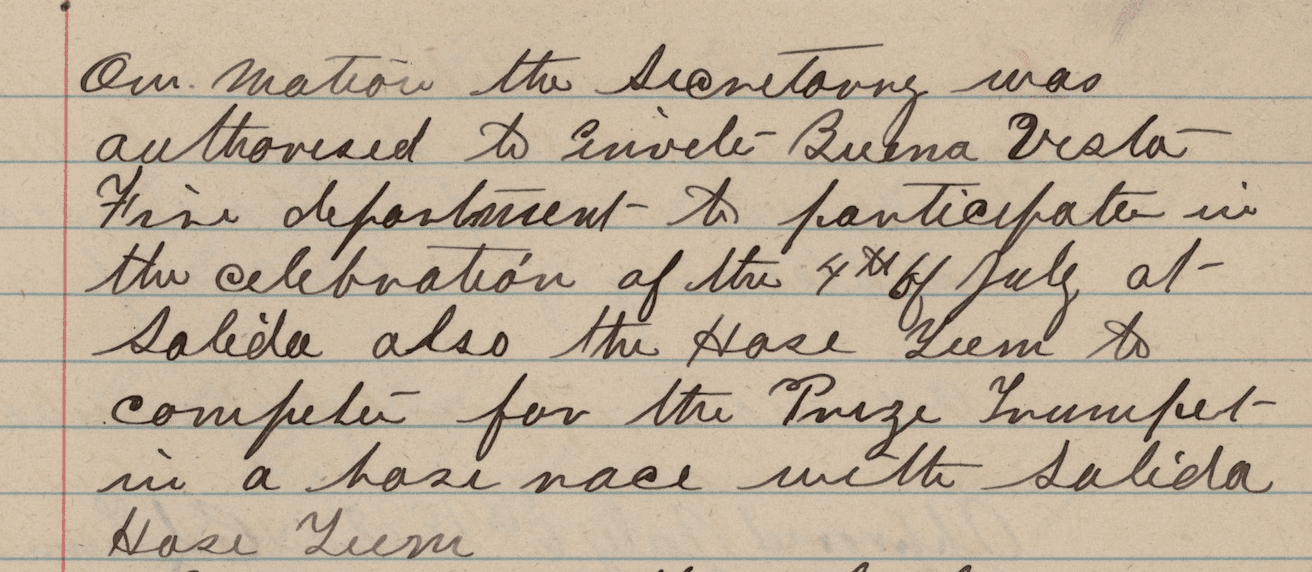 On Motion the Secretarry was
authorised to Envite Buena Vesta
Fire department to participate in
the celebration of the 4th of July at
Salida also the Hose Teem to
compete for the Prize Trumpet
in a hose race with Salida
Hose Teem